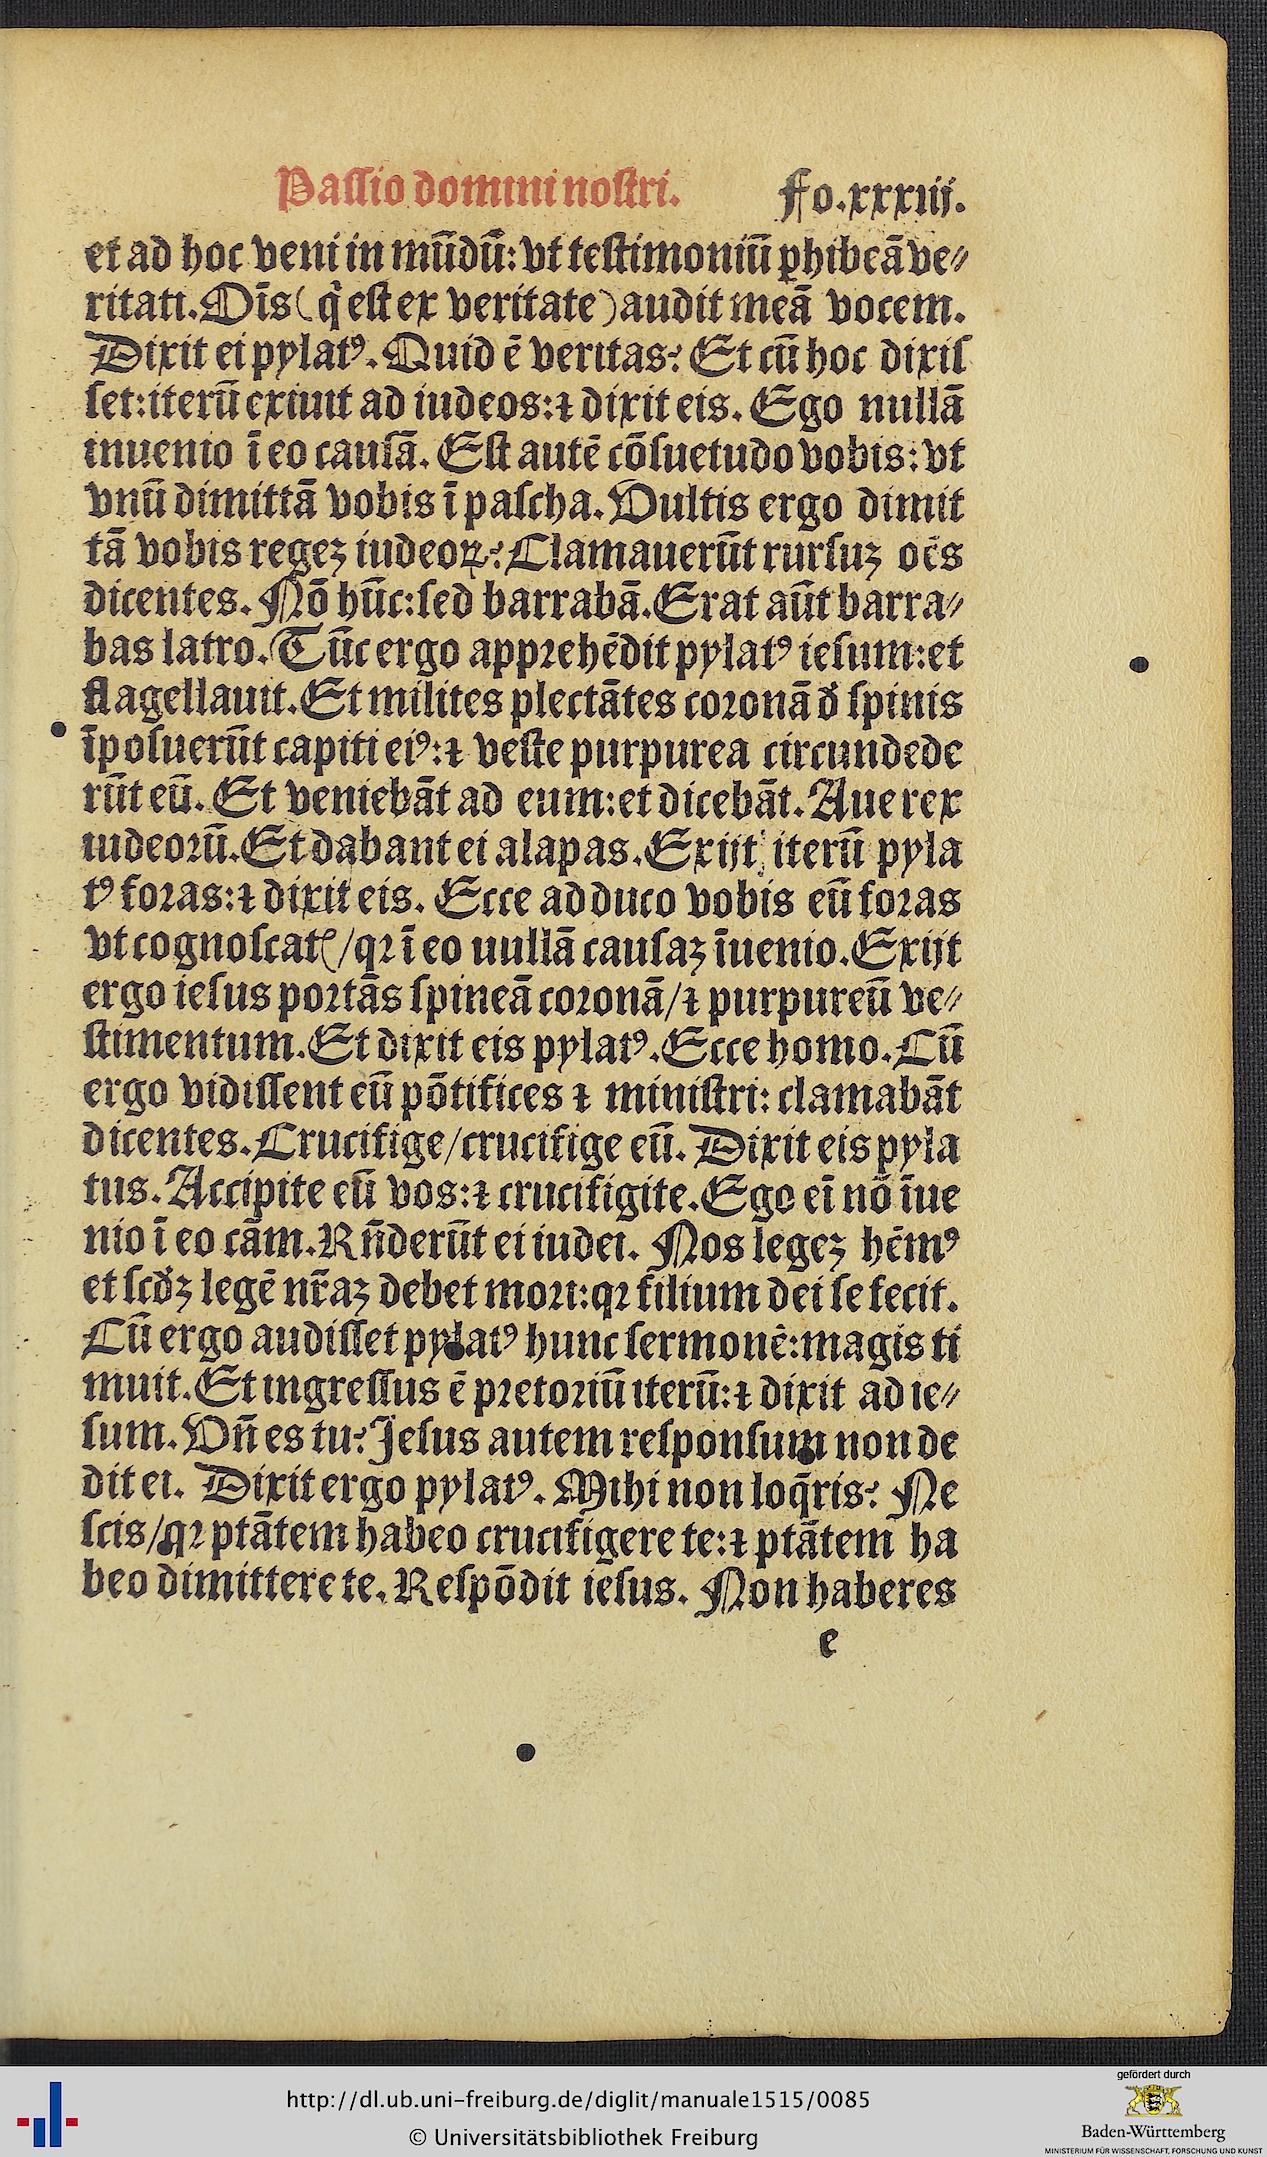 Passio domini nostri. Fo.xxxiij.
et ad hoc veni in mūdū: vt testimoniū ꝑhibeā ve⸗
ritati. Oīs (q̇ est ex veritate) audit meā vocem.
Dixit ei pylatꝰ. Quid ē veritas? Et cū hoc dixis
set: iterū exiuit ad iudeos: ⁊ dixit eis. Ego nullā
inuenio ī eo causā. Est autē cōsuetudo vobis: vt
vnū dimittā vobis ī pascha. Vultis ergo dimit
tā vobis regeꝫ iudeoꝝ? Clamauerūt rursuꝫ oēs
dicentes. Nō hūc: sed barrabā. Erat aūt barra⸗
bas latro. Tūc ergo apprehēdit pylatꝰ iesum: et
flagellauit. Et milites plectātes coronā đ spinis
īposuerūt capiti eiꝰ: ⁊ veste purpurea circundede
rūt eū. Et veniebāt ad eum: et dicebāt. Aue rex
iudeorū. Et dabant ei alapas. Exijt iterū pyla
tꝰ foras: ⁊ dixit eis. Ecce adduco vobis eū foras
vt cognoscatꝭ/ qꝛ ī eo uullā causaꝫ īuenio. Exijt
ergo iesus portās spineā coronā/ ⁊ purpureū ve⸗
stimentum. Et dixit eis pylatꝰ. Ecce homo. Cū
ergo vidissent eū pōtifices ⁊ ministri: clamabāt
dicentes. Crucifige/ crucifige eū. Dixit eis pyla
tus. Accipite eū vos: ⁊ crucifigite. Ego eī nō īue
nio ī eo cām. Rn̄derūt ei iudei. Nos legeꝫ hēmꝰ
et scđꝫ legē nr̄aꝫ debet mori: qꝛ filium dei se fecit.
Cū ergo audisset pylatꝰ hunc sermonē: magis ti
muit. Et ingressus ē pretoriū iterū: ⁊ dixit ad ie⸗
sum. Vn̄ es tu? Jesus autem responsum non de
dit ei. Dixit ergo pylatꝰ. Mihi non loq̄ris? Ne
scis/ qꝛ ptātem habeo crucifigere te: ⁊ ptātem ha
beo dimittere te. Respōdit iesus. Non haberes
e
http://dl.ub.uni-freiburg.de/diglit/manuale1515/0085
© Universitätsbibliothek Freiburg
gefördert durch
Baden-Württemberg
MINISTERIUM FÜR WISSENSCHAFT, FORSCHUNG UND KUNST